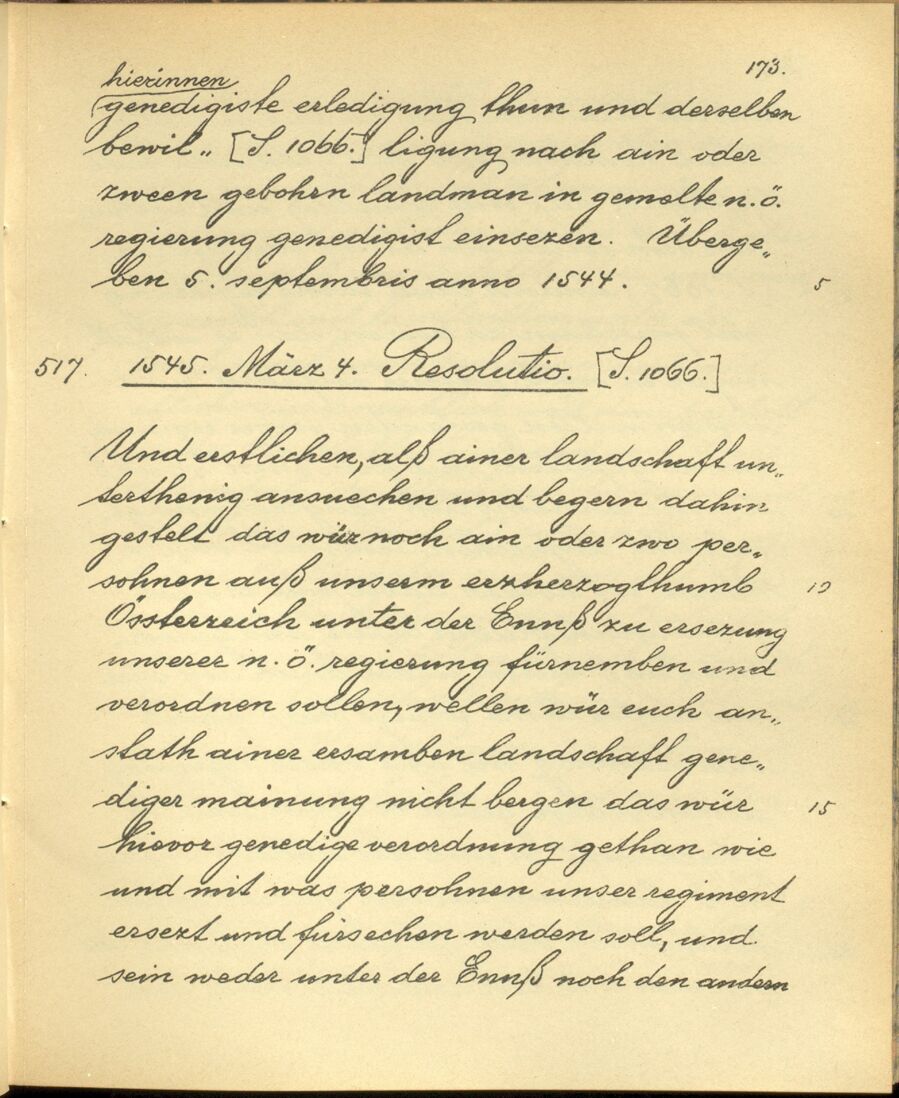 173.
hierinnen
genedigiste erledigung thun und derselben
bewil„ [S. 1066.] ligung nach ain oder
zween gebohrn landman in gemelte n.ö.
regierung genedigist einsezen. Überge„
ben 5. septembris anno 1544. 5
517. 1545. März 4. Resolutio. [S. 1066.]
Und erstlichen, alß ainer landschaft un„
terthenig ansuechen und begern dahin
gestelt das wür noch ain oder zwo per„
sohnen auß unserm erzherzogthumb 10
Össterreich unter der Ennß zu ersezung
unserer n.ö. regierung fürnemben und
verordnen sollen, wellen wür euch an„
stath ainer ersamben landschaft gene„
diger mainung nicht bergen das wür 15
hievor genedige verordnung gethan wie
und mit was persohnen unser regiment
ersezt und fürsechen werden soll, und
sein weder unter der Ennß noch den andern